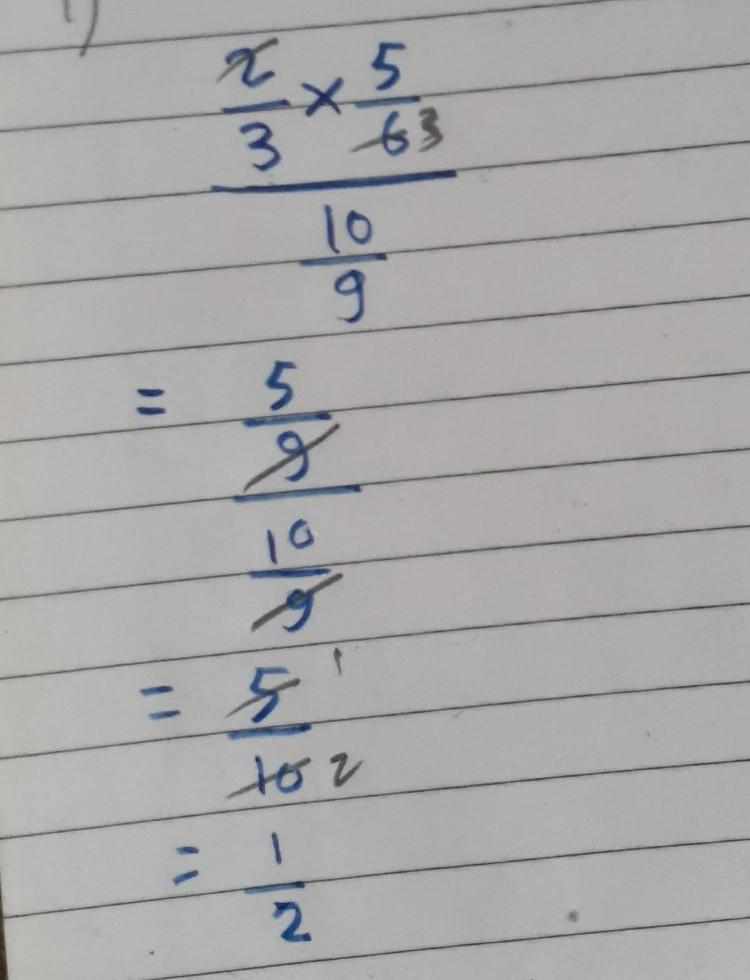 1)
2/3 × 5/6 3
10/9
= 5/9
10/9
= 5/10 1 2
= 1/2